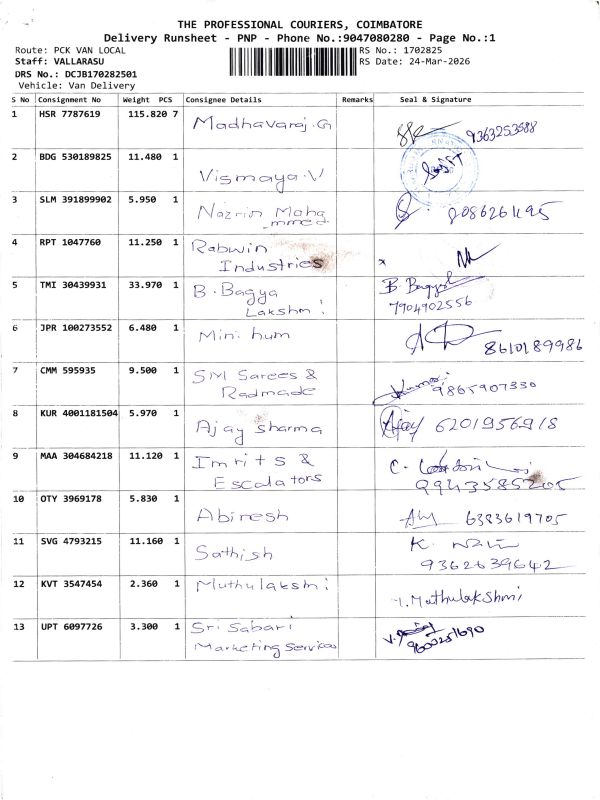 THE PROFESSIONAL COURIERS, COIMBATORE
Delivery Runsheet - PNP - Phone No.:9047080280 - Page No.:1
Route: PCK VAN LOCAL RS No.: 1702825
Staff: VALLARASU RS Date: 24-Mar-2026
DRS No.: DCJB170282501
Vehicle: Van Delivery
S No Consignment No Weight PCS Consignee Details Remarks Seal & Signature
1 HSR 7787619 115.820 7 Madhavaraj.G 9363253588
2 BDG 530189825 11.480 1 Vismaya.V
3 SLM 391899902 5.950 1 Nazrin Moha
mmed 8086261195
4 RPT 1047760 11.250 1 Rabwin
Industries
5 TMI 30439931 33.970 1 B.Bagya
Lakshmi
7904902556
6 JPR 100273552 6.480 1 Mini hum
8610189986
7 CMM 595935 9.500 1 SM Sarees &
Radmade 9865907330
8 KUR 4001181504 5.970 1 Ajay sharma Ajay 6201956918
9 MAA 304684218 11.120 1 Imrits &
Escalators 9943585205
10 OTY 3969178 5.830 1 Abiresh 6383619705
11 SVG 4793215 11.160 1 Sathish K.
9362639642
12 KVT 3547454 2.360 1 Muthulakshmi Y. Muthulakshmi
13 UPT 6097726 3.300 1 Sri Sabari
Marketing Services 9600251690